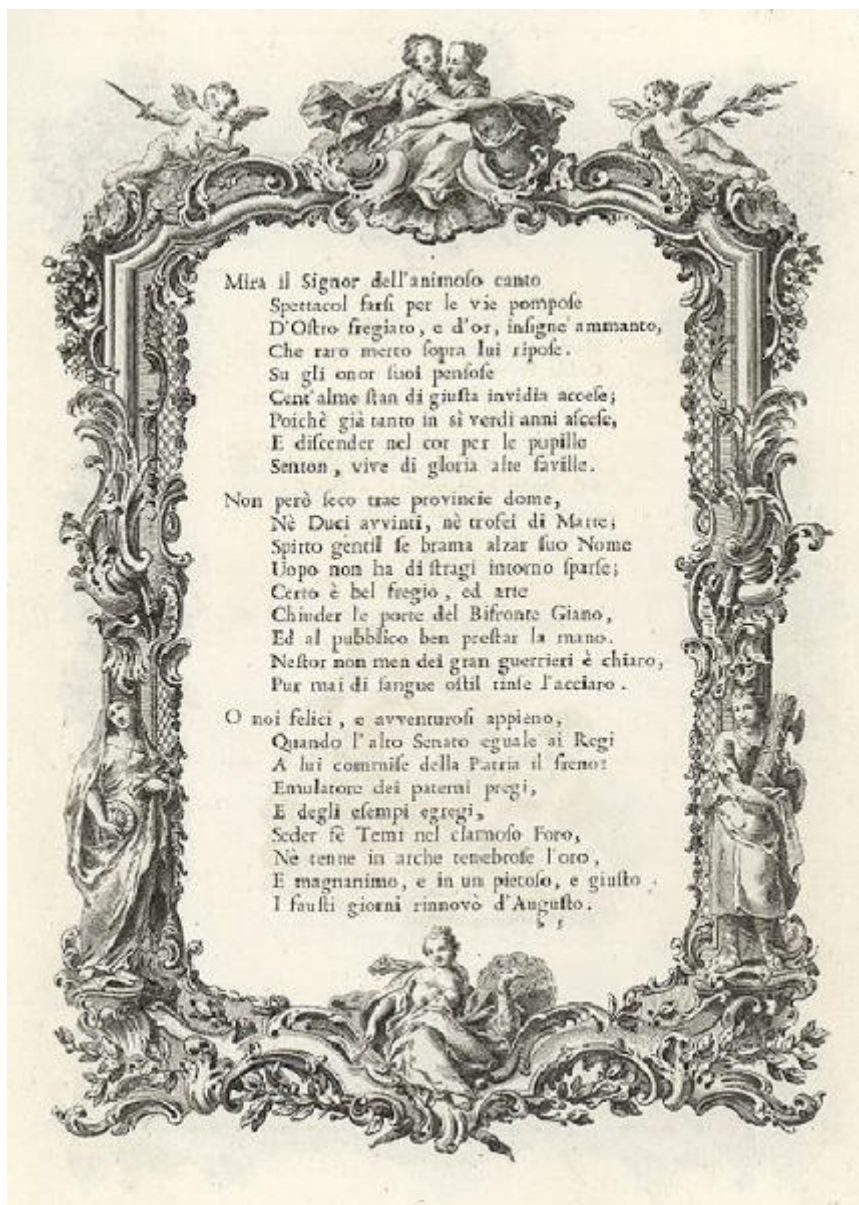 Mira il Signor dell'animoſo canto
Spettacol farſi per le vie pompoſe
D'Oſtro fregiato, e d'or, inſigne ammanto,
Che raro merto ſopra lui ripoſe.
Su gli onor ſuoi penſoſe
Cent'alme ſtan di giuſta invidia acceſe;
Poichè già tanto in sì verdi anni aſceſe,
E diſcender nel cor per le pupille
Senton, vive di gloria alte faville.
Non però ſeco trae provincie dome,
Nè Duci avvinti, nè trofei di Marte;
Spirto gentil ſe brama alzar ſuo Nome
Uopo non ha di ſtragi intorno ſparſe;
Certo è bel fregio, ed arte
Chiuder le porte del Bifronte Giano,
Ed al pubblico ben preſtar la mano.
Neſtor non men dei gran guerrieri è chiaro,
Pur mai di ſangue oſtil tinſe l'acciaro.
O noi felici, e avventuroſi appieno,
Quando l'alto Senato eguale ai Regi
A lui commiſe della Patria il freno:
Emulatore dei paterni pregi,
E degli eſempi egregi,
Seder fè Temi nel clamoſo Foro,
Nè tenne in arche tenebroſe l'oro,
E magnanimo, e in un pietoſo, e giuſto
I fauſti giorni rinnovò d'Auguſto.